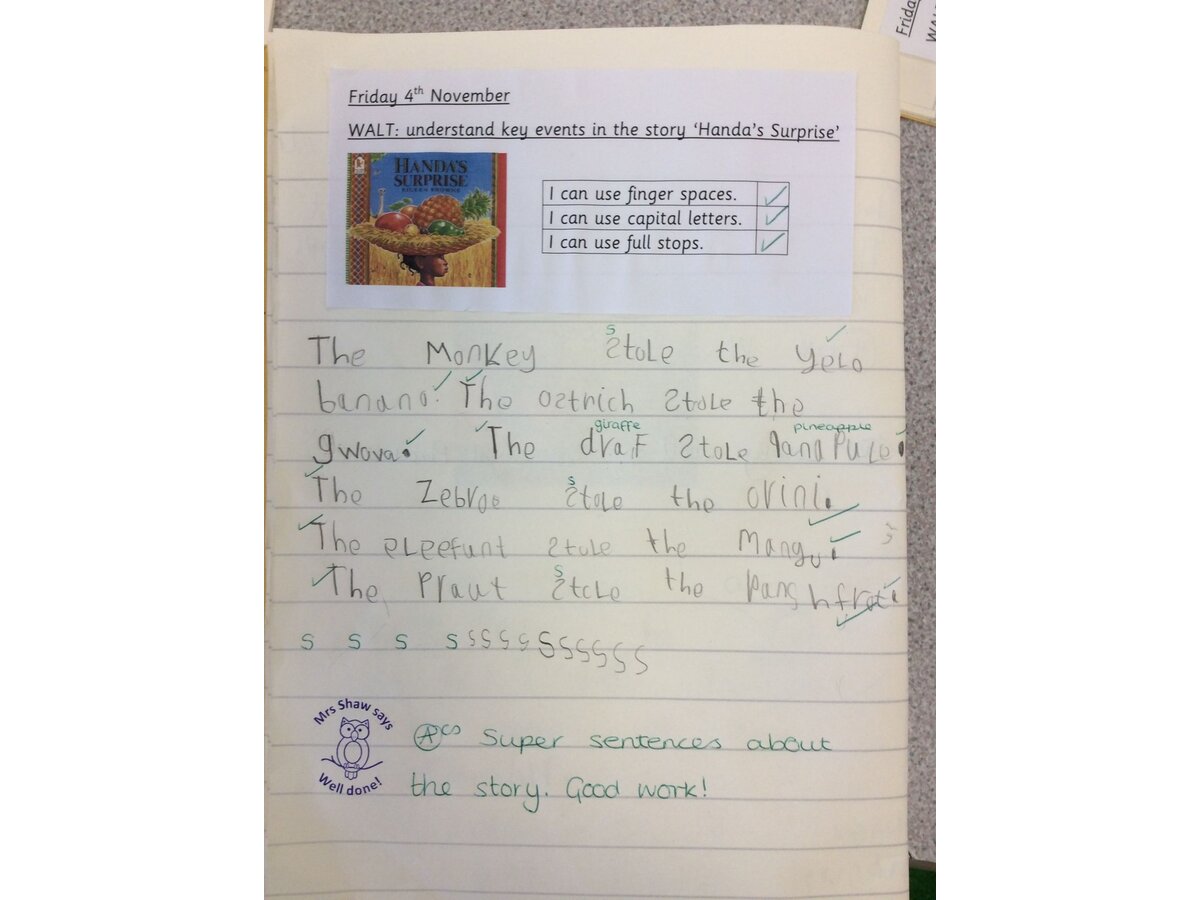 Friday 4th November
WALT: understand key events in the story ‘Handa’s Surprise’
HANDA'S
SURPRISE
EILEEN BROWNE
I can use finger spaces. ✓
I can use capital letters. ✓
I can use full stops. ✓
s
The Monkey Stole the yelo
banana. The ostrich Stole the
giraffe pineapple
gwova. The draf Stole panapule.
s
The Zebraa Stole the orini.
The eleefunt stole the Mango.
s
The Praut Stole the panghfrot.
s s s s s s s s s s s s s s s
Mrs Shaw says
Well done!
A cs Super sentences about
the story. Good work!